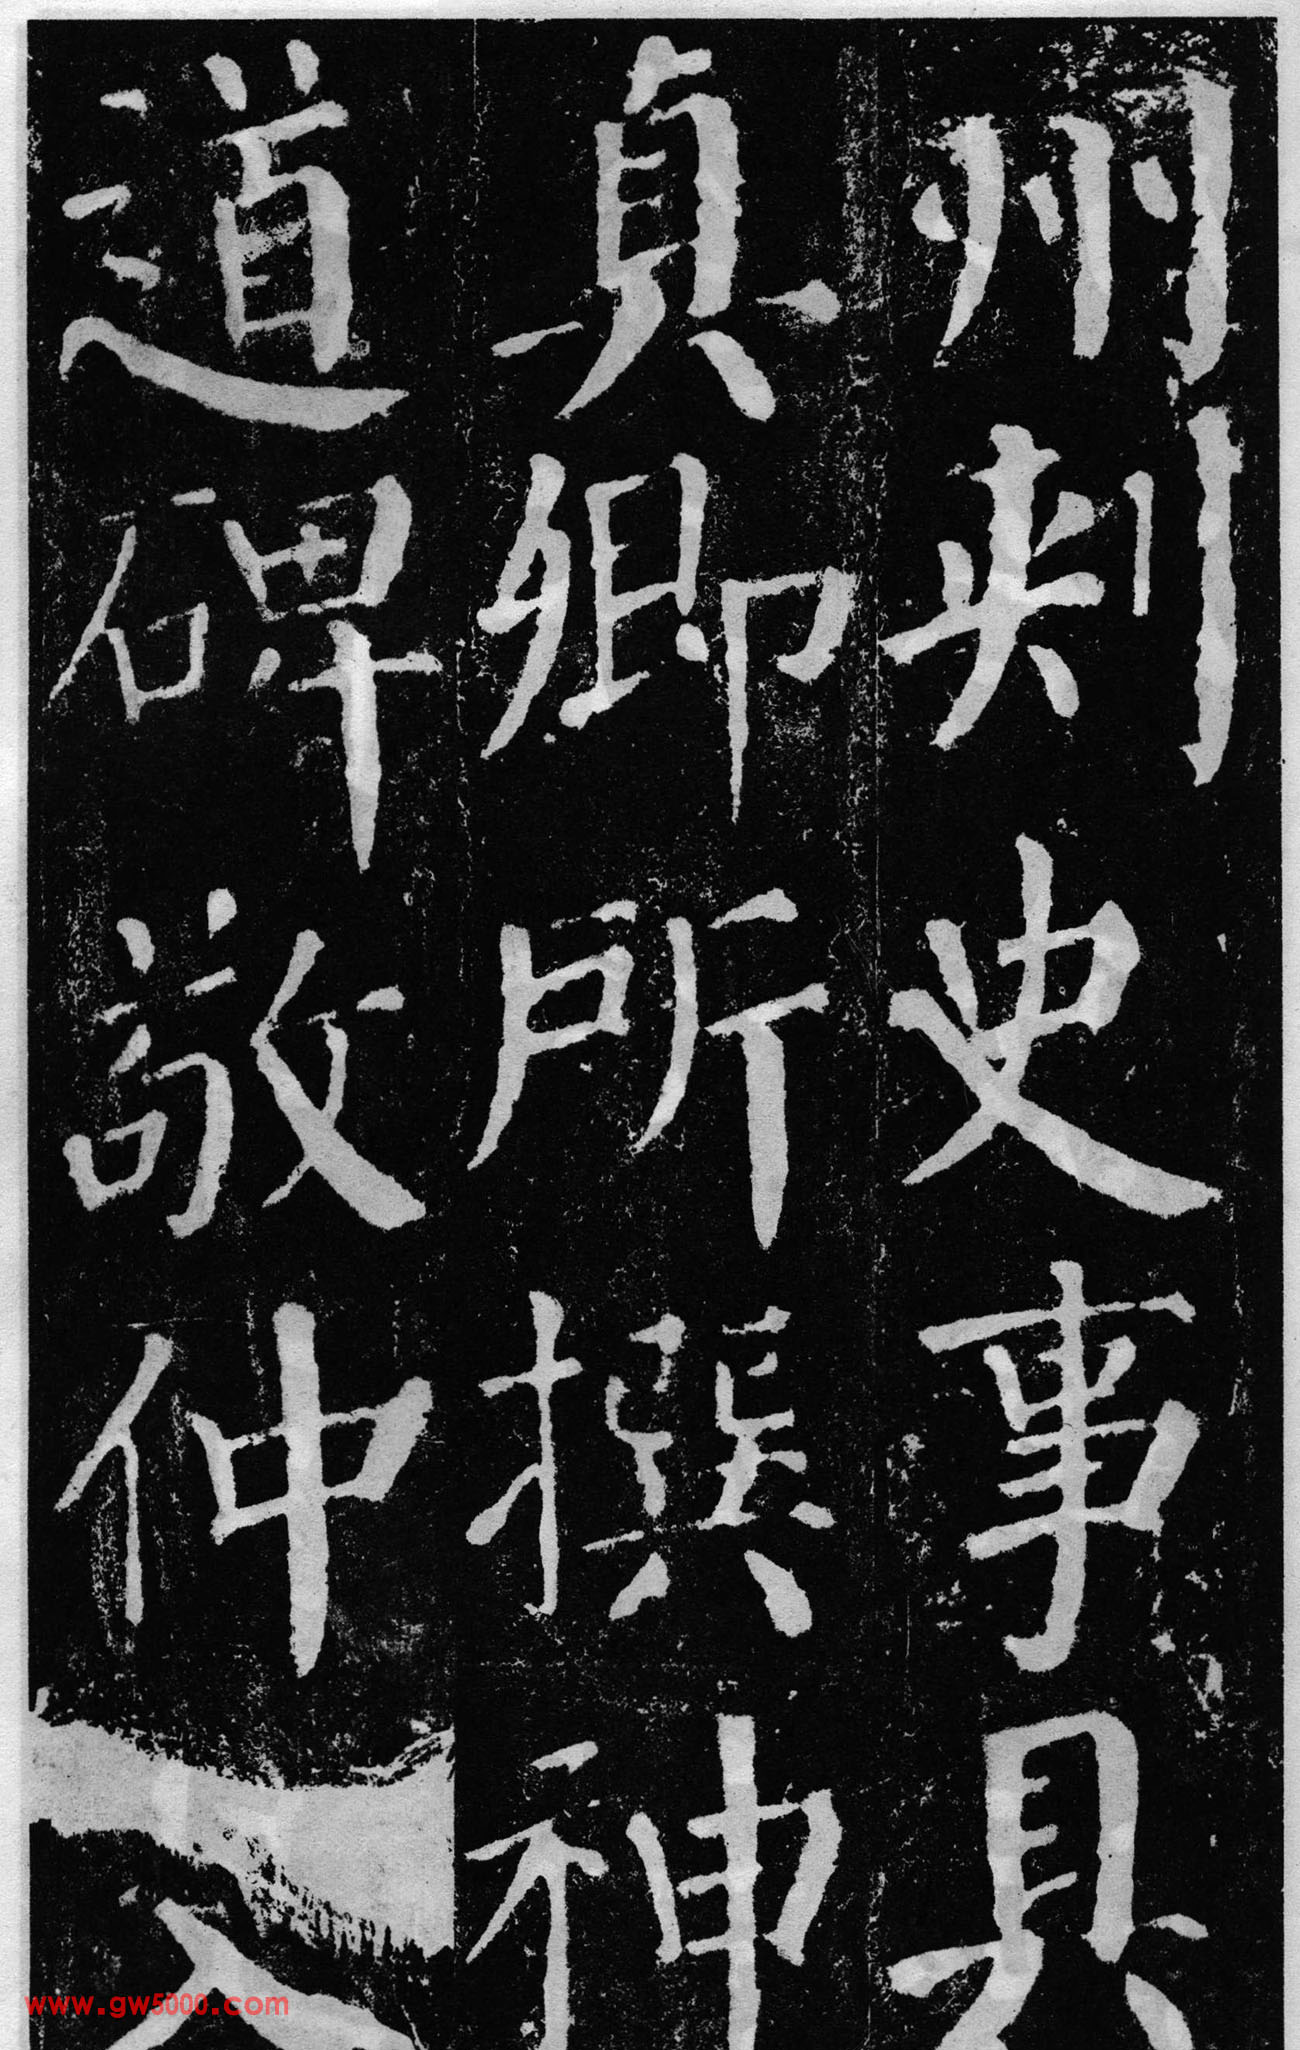 州刺史事具
真卿所撰神
道碑敬仲
www.gw5000.com